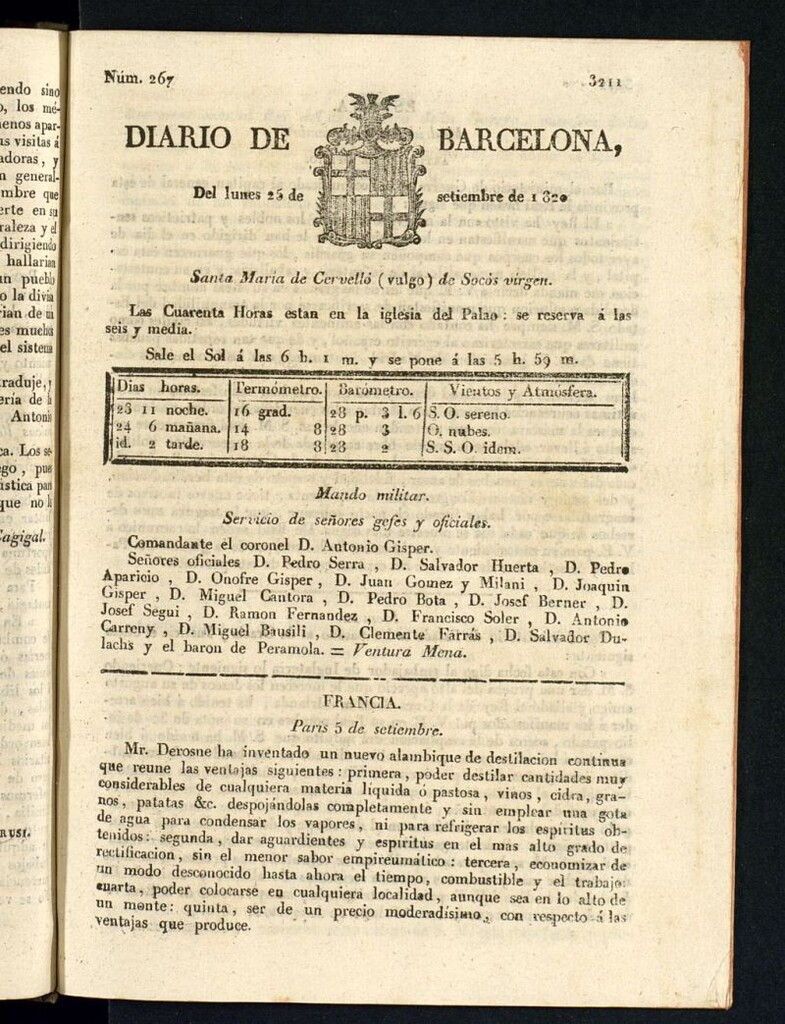 endo sino
o, los mé-
enos apar-
as visitas á
adoras, y
n general-
mbre que
erte en su
raleza y el
dirigiendo
hallarian
un pueblo
o la divi
rian de
es muchos
el sistema
raduje,
ería de
Antoni
ca. Los se-
go, pue
ística par
que no
Cagigal.
RUSI.
Núm. 267 3211
DIARIO DE BARCELONA,
Del lunes 25 de setiembre de 1820
Santa María de Cervelló (vulgo) de Socós vírgen.
Las Cuarenta Horas estan en la iglesia del Palao: se reserva á las
seis y media.
Sale el Sol á las 6 h. 1 m. y se pone á las 5 h. 59 m.
Dias horas. Termómetro. Barómetro. Vientos y Atmósfera.
23 11 noche. 16 grad. 28 p. 3 l. 6 S. O. sereno.
24 6 mañana. 14 8 28 3 O. nubes.
id. 2 tarde. 18 8 28 2 S. S. O. idem.
Mando militar.
Servicio de señores gefes y oficiales.
Comandante el coronel D. Antonio Gisper.
Señores oficiales D. Pedro Serra, D. Salvador Huerta, D. Pedro
Aparicio, D. Onofre Gisper, D. Juan Gomez y Milani, D. Joaquin
Gisper, D. Miguel Cantora, D. Pedro Bota, D. Josef Berner, D.
Josef Segui, D. Ramon Fernandez, D. Francisco Soler, D. Antonio
Carreny, D. Miguel Bausili, D. Clemente Farrás, D. Salvador Du-
lachs y el baron de Peramola. = Ventura Mena.
FRANCIA.
Paris 5 de setiembre.
Mr. Derosne ha inventado un nuevo alambique de destilacion continua
que reune las ventajas siguientes: primera, poder destilar cantidades muy
considerables de cualquiera materia líquida ó pastosa, vinos, cidra, gra-
nos, patatas &c. despojándolas completamente y sin emplear una gota
de agua para condensar los vapores, ni para refrigerar los espíritus ob-
tenidos: segunda, dar aguardientes y espíritus en el mas alto grado de
rectificacion, sin el menor sabor empireumático: tercera, economizar de
un modo desconocido hasta ahora el tiempo, combustible y el trabajo:
cuarta, poder colocarse en cualquiera localidad, aunque sea en lo alto de
un monte: quinta, ser de un precio moderadísimo, con respecto á las
ventajas que produce.